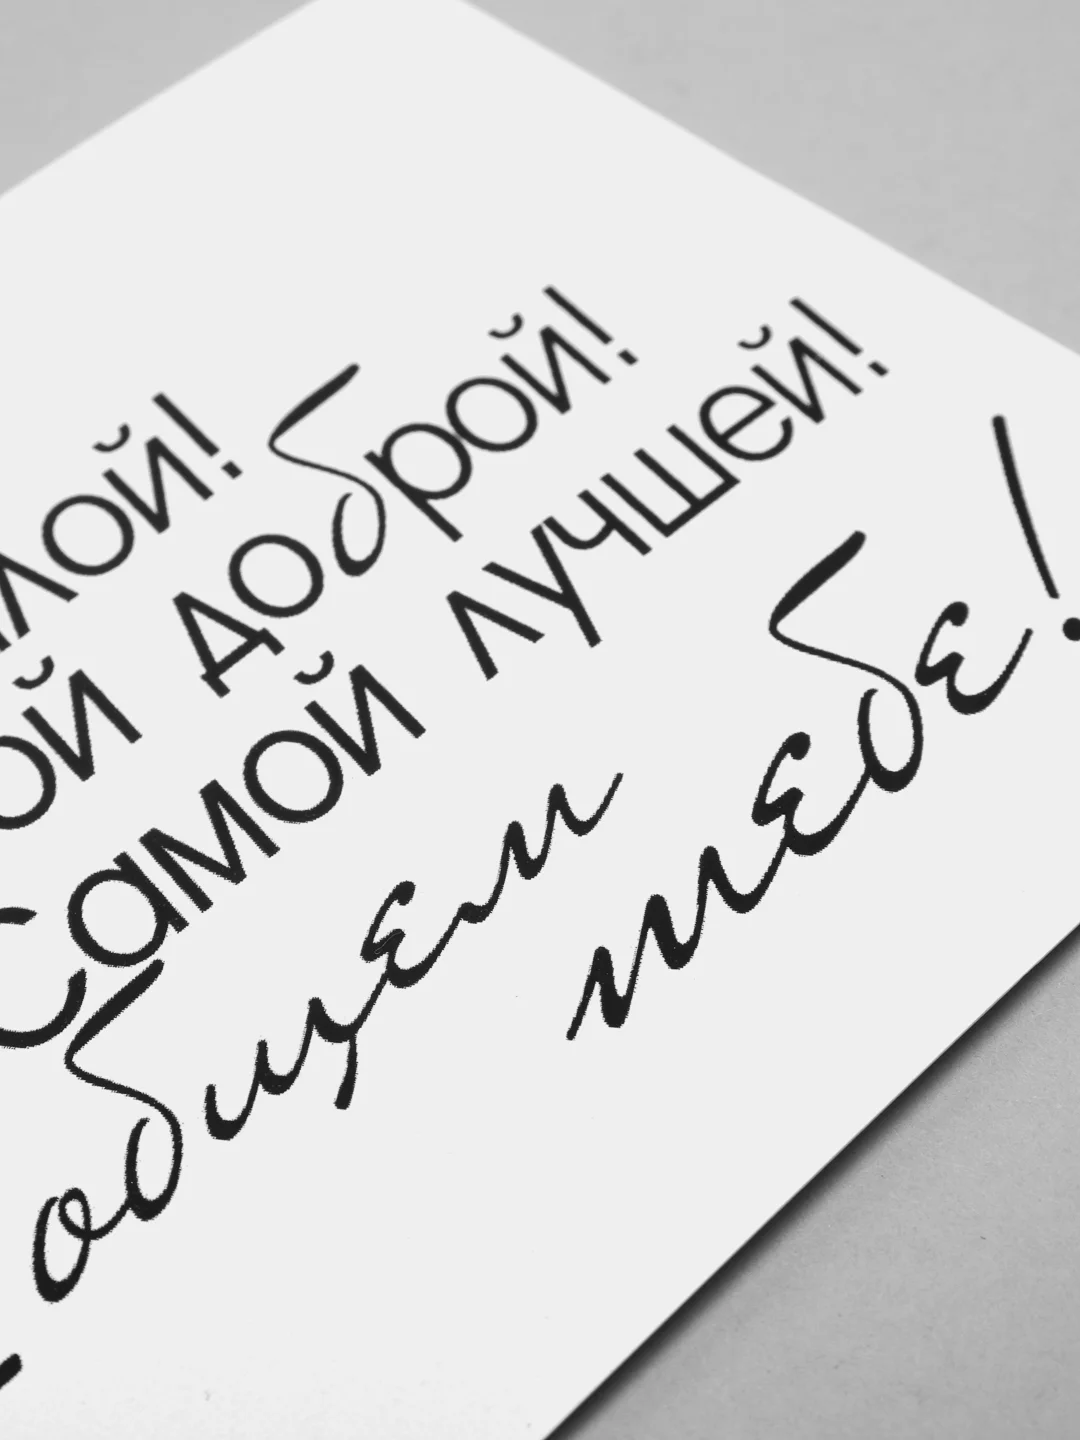 лой!
ой доброй!
Самой лучшей!
общем тебе!